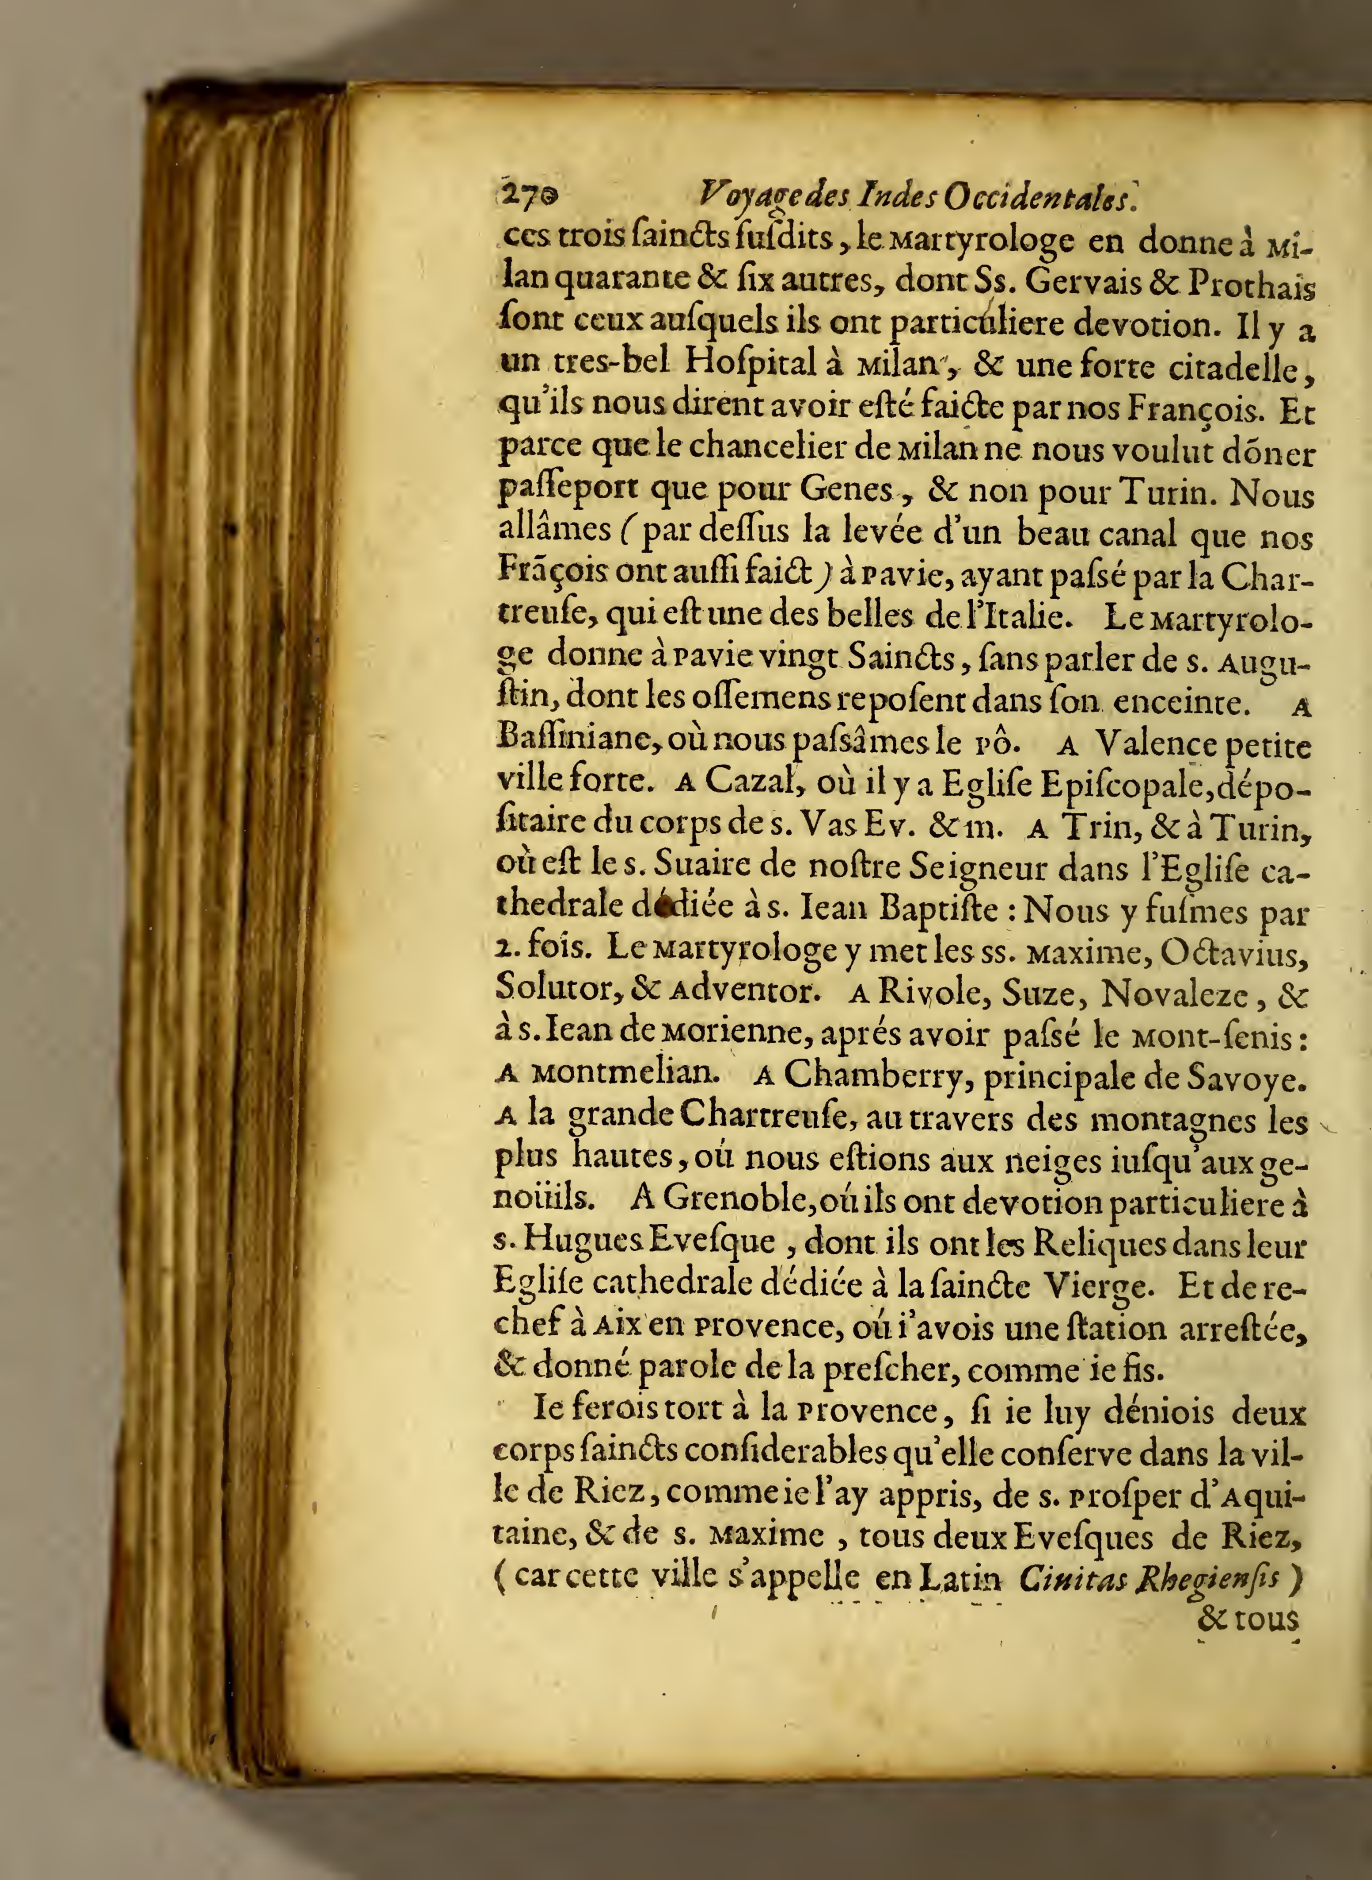 270 Voyage des Indes Occidentales.
ces trois ſaincts ſuſdits, le Martyrologe en donne à Mi-
lan quarante & ſix autres, dont Ss. Gervais & Prothais
ſont ceux auſquels ils ont particuliere devotion. Il y a
un tres-bel Hoſpital à Milan, & une forte citadelle,
qu'ils nous dirent avoir eſté faicte par nos François. Et
parce que le chancelier de Milan ne nous voulut dõner
paſſeport que pour Genes, & non pour Turin. Nous
allâmes (par deſſus la levée d'un beau canal que nos
Frãçois ont auſſi faict) à Pavie, ayant paſsé par la Char-
treuſe, qui eſt une des belles de l'Italie. Le Martyrolo-
ge donne à Pavie vingt Saincts, ſans parler de s. Augu-
ſtin, dont les oſſemens repoſent dans ſon enceinte. A
Baſſiniane, où nous paſsâmes le Pô. A Valence petite
ville forte. A Cazal, où il y a Egliſe Epiſcopale, dépo-
ſitaire du corps de s. Vas Ev. & m. A Trin, & à Turin,
où eſt le s. Suaire de noſtre Seigneur dans l'Egliſe ca-
thedrale dédiée à s. Iean Baptiſte : Nous y fuſmes par
2. fois. Le Martyrologe y met les ss. Maxime, Octavius,
Solutor, & Adventor. A Rivole, Suze, Novaleze, &
à s. Iean de Morienne, aprés avoir paſsé le Mont-ſenis :
A Montmelian. A Chamberry, principale de Savoye.
A la grande Chartreuſe, au travers des montagnes les
plus hautes, oú nous eſtions aux neiges iuſqu'aux ge-
noüils. A Grenoble, oú ils ont devotion particuliere à
s. Hugues Eveſque, dont ils ont les Reliques dans leur
Egliſe cathedrale dédiée à la ſaincte Vierge. Et de re-
chef à Aix en Provence, oú i'avois une ſtation arreſtée,
& donné parole de la preſcher, comme ie fis.
Ie ferois tort à la Provence, ſi ie luy déniois deux
corps ſaincts conſiderables qu'elle conſerve dans la vil-
le de Riez, comme ie l'ay appris, de s. Proſper d'Aqui-
taine, & de s. Maxime, tous deux Eveſques de Riez,
(car cette ville s'appelle en Latin Ciuitas Rhegienſis)
& tous